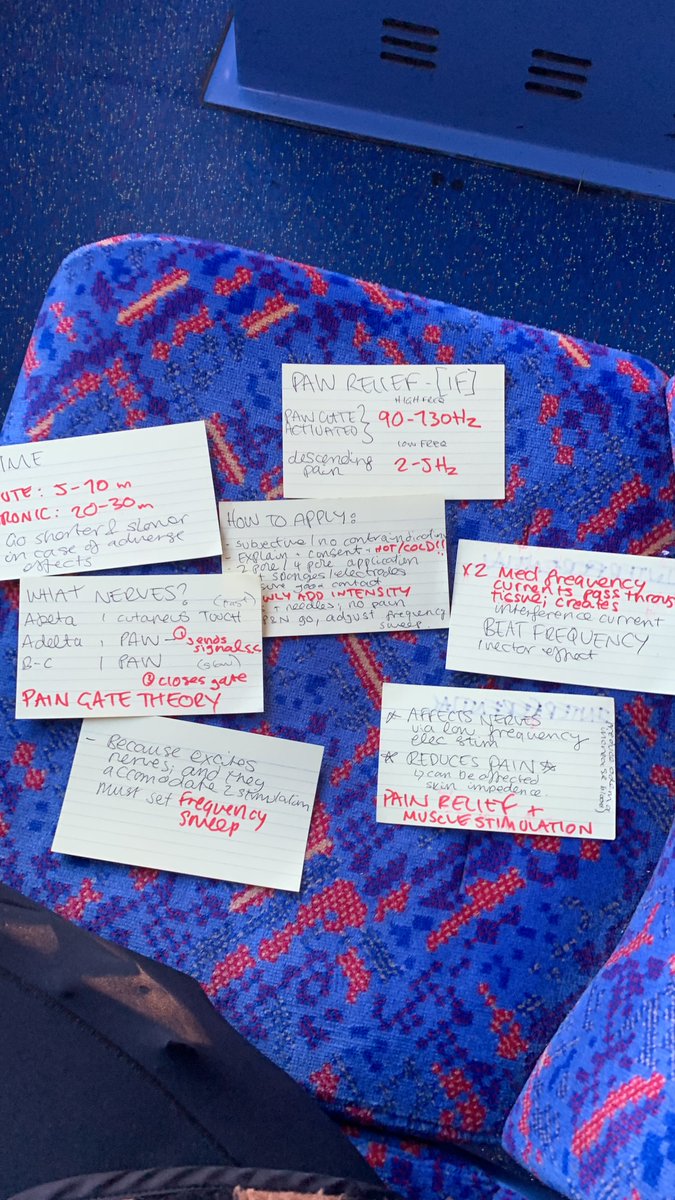 PAIN RELIEF - [IF]
HIGH FREQ
PAIN GATE
ACTIVATED
90-130Hz
LOW FREQ
descending
pain
2-5Hz
IME
UTE: 5-10 m
RONIC: 20-30m
Go shorter & slower
in case of adverse
effects
HOW TO APPLY:
- subjective / no contraindication
Explain + consent - HOT/COLD!!
2 pole / 4 pole application
sponges/electrodes
sure good contact
NLY ADD INTENSITY
+ needles, no pain
go, adjust frequency
sweep
WHAT NERVES? (fast)
A beta | cutaneous TOUCH
A delta | PAIN - ① sends
signals
C | PAIN (slow)
② closes gate
PAIN GATE THEORY
x2 Med frequency
currents pass throu
tissue, creates
interference current
BEAT FREQUENCY
/ vector effect
* AFFECTS NERVES
via low frequency
elec stim
* REDUCES PAIN *
↳ can be affected
skin impedence.
PAIN RELIEF +
MUSCLE STIMULATION
- Because excites
nerves, and they
accomodate 2 stimulation
Must set frequency
sweep